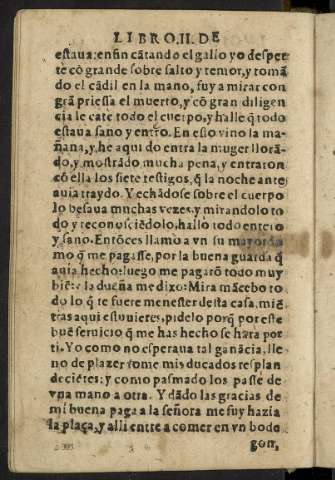 LIBRO.II.DE
estaua: en fin cãtando el gallo yo desper
tè cõ grande sobre salto y temor, y tomã
do el cãdil en la mano, fuy a mirar con
grã priessa el muerto, y cõ gran diligen
cia le catè todo el cuerpo, y hallè q̃ todo
estaua sano y entero. En esto vino la ma-
ñana, y he aqui do entra la muger llorã-
do, y mostrãdo mucha pena, y entraron
cõ ella los siete testigos, q̃ la noche ante
auia traydo. Y echãdose sobre el cuerpo
lo besaua muchas vezes, y mirandolo to
do y reconosciẽdolo, hallò todo entero
y sano. Entõces llamo a vn su mayordo
mo q̃ me pagasse, por la buena guarda q̃
auia hecho: luego me pagarõ todo muy
biẽ: y la dueña me dixo: Mira mãcebo to
do lo q̃ te fuere menester desta casa, miẽ
tras aqui estuuieres, pidelo porq̃ por este
buẽ seruicio q̃ me has hecho se hara por
ti. Yo como no esperaua tal ganãcia, lle
no de plazer tome mis ducados resplan
deciẽtes: y como pasmado los passè de
vna mano a otra. Y dãdo las gracias de
mi buena paga a la señora me fuy hazia
la plaça, y alli entre a comer en vn bodo
gon,